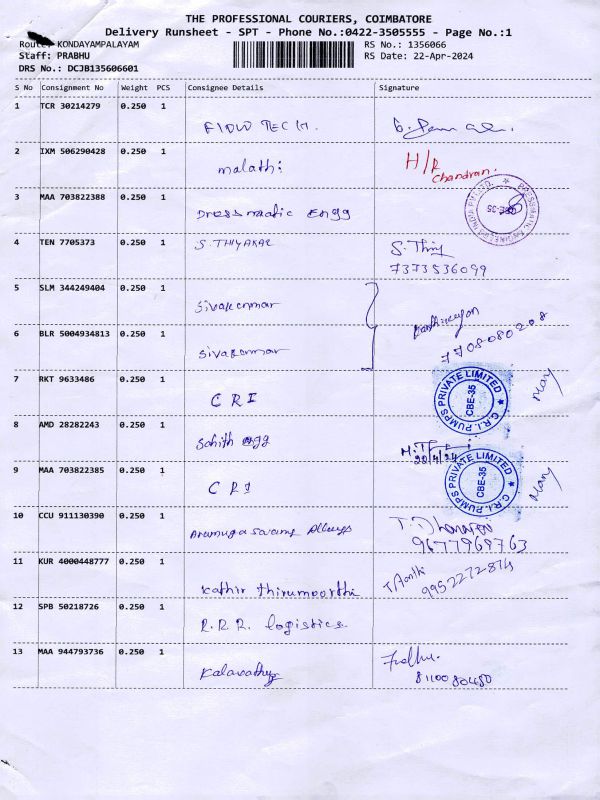 THE PROFESSIONAL COURIERS, COIMBATORE
Delivery Runsheet - SPT - Phone No.:0422-3505555 - Page No.:1
Route: KONDAYAMPALAYAM
Staff: PRABHU
DRS No.: DCJB135606601
RS No.: 1356066
RS Date: 22-Apr-2024
S No Consignment No Weight PCS Consignee Details Signature
1 TCR 30214279 0.250 1 FLOW TECH.
2 IXM 506290428 0.250 1 malathi H/R Chandran.
3 MAA 703822388 0.250 1 Pressmatic engg CBE-35
4 TEN 7705373 0.250 1 S.THIYAKAR S.Thiy
7373536099
5 SLM 344249404 0.250 1 Sivakumar
6 BLR 5004934813 0.250 1 Sivakumar Karthikeyan
7708080208
7 RKT 9633486 0.250 1 CRI C.R.I. PUMPS PRIVATE LIMITED CBE-35 Mary
8 AMD 28282243 0.250 1 Sahith engg 22/4/24
9 MAA 703822385 0.250 1 CRI C.R.I. PUMPS PRIVATE LIMITED CBE-35 Mary
10 CCU 911130390 0.250 1 Arumuga Swamy Alloys
9677969763
11 KUR 4000448777 0.250 1 Kathir thirumoorthi
9952272874
12 SPB 50218726 0.250 1 R.R.R. logistics.
13 MAA 944793736 0.250 1 Kalavathy
8100080480